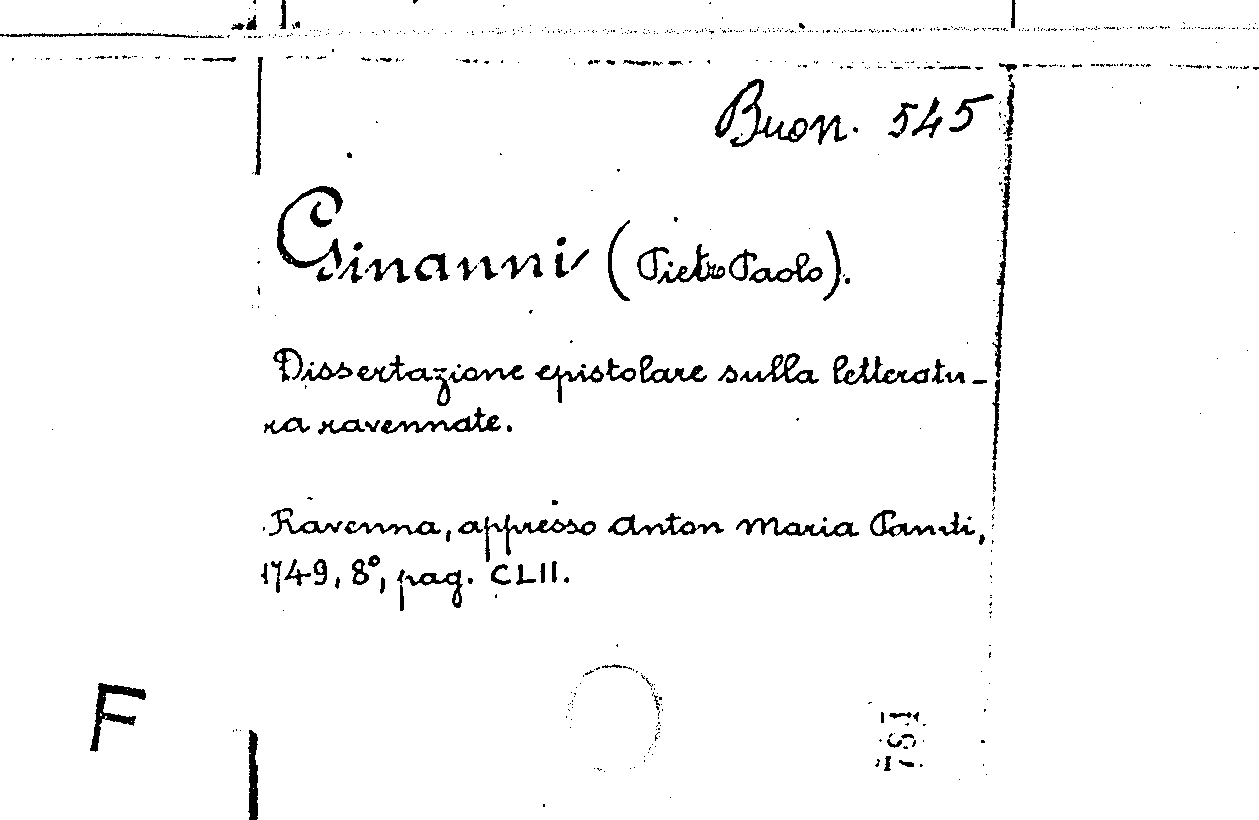 Buon. 545
Ginanni (Pietro Paolo).
Dissertazione epistolare sulla letteratu-
ra ravennate.
Ravenna, appresso Anton Maria Landi,
1749, 8°, pag. CLII.
F